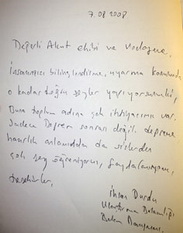 7.08.2008
Değerli Akut ekibi ve Vodafone,
İnsanımızı bilinçlendirme, uyarma konusunda
o kadar doğru şeyler yapıyorsunuz ki,
Buna toplum adına çok ihtiyacımız var.
Sadece Deprem sonrası değil, depreme
hazırlık anlamında da sizlerden
çok şey öğreniyoruz, faydalanıyoruz,
teşekkürler,
Ulaştırma Bakanlığı
Bakan Danışmanı